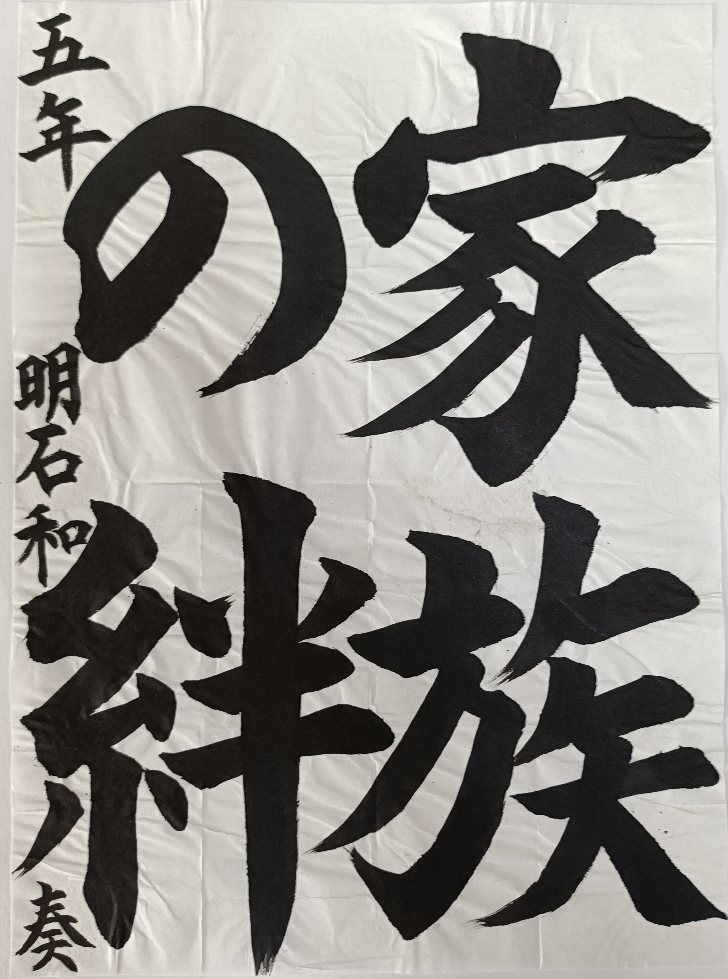 家族
の絆
五年 明石和奏